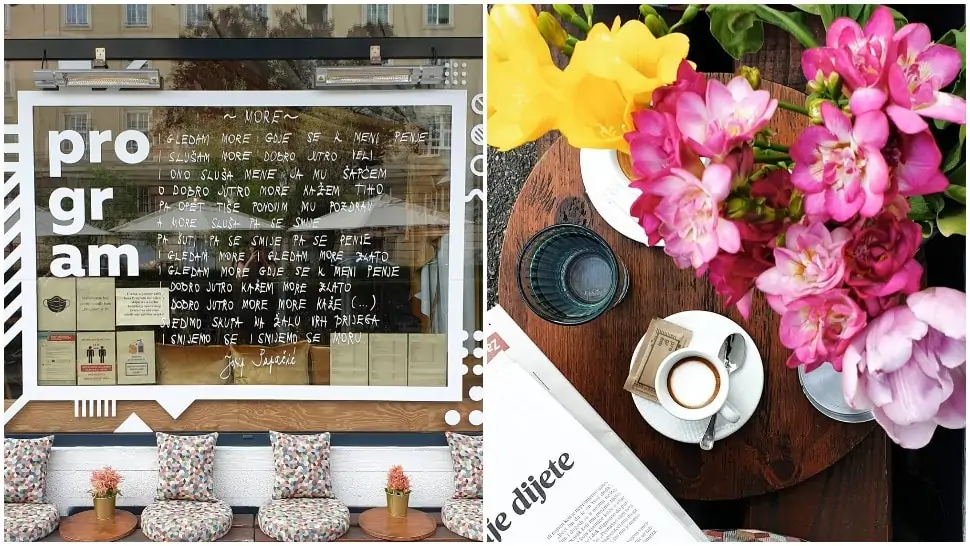 pro
gr
am
~ MORE ~
I GLEDAM MORE GDJE SE K MENI PENJE
I SLUŠAM MORE DOBRO JUTRO VELI
I ONO SLUŠA MENE JA MU ŠAPĆEM
O DOBRO JUTRO MORE KAŽEM TIHO
PA OPET TIŠE PONOVIM MU POZDRAV
A MORE SLUŠA PA SE SMIJE
PA ŠUTI PA SE SMIJE PA SE PENJE
I GLEDAM MORE I GLEDAM MORE ZLATO
I GLEDAM MORE GDJE SE K MENI PENJE
DOBRO JUTRO KAŽEM MORE ZLATO
DOBRO JUTRO MORE MORE KAŽE (...)
SJEDIMO SKUPA NA ŽALU VRH BRIJEGA
I SMIJEMO SE I SMIJEMO SE MORU
Josip Pupačić
je dijete